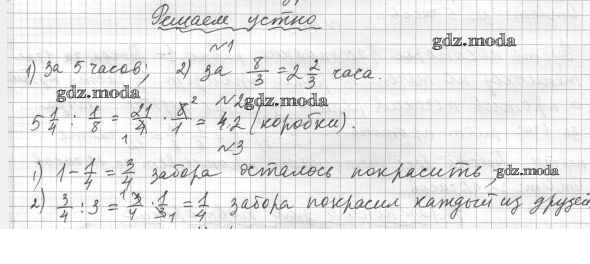 Решаем устно
№1
gdz.moda
1) За 5 часов; 2) за 8/3 = 2 2/3 часа.
gdz.moda №2 gdz.moda
5 1/4 : 1/8 = 21/4 · 8/1 = 42 (коробки).
№3
1) 1 - 1/4 = 3/4 забора осталось покрасить; gdz.moda
2) 3/4 : 3 = 3/4 · 1/3 = 1/4 забора покрасил каждый из друзей